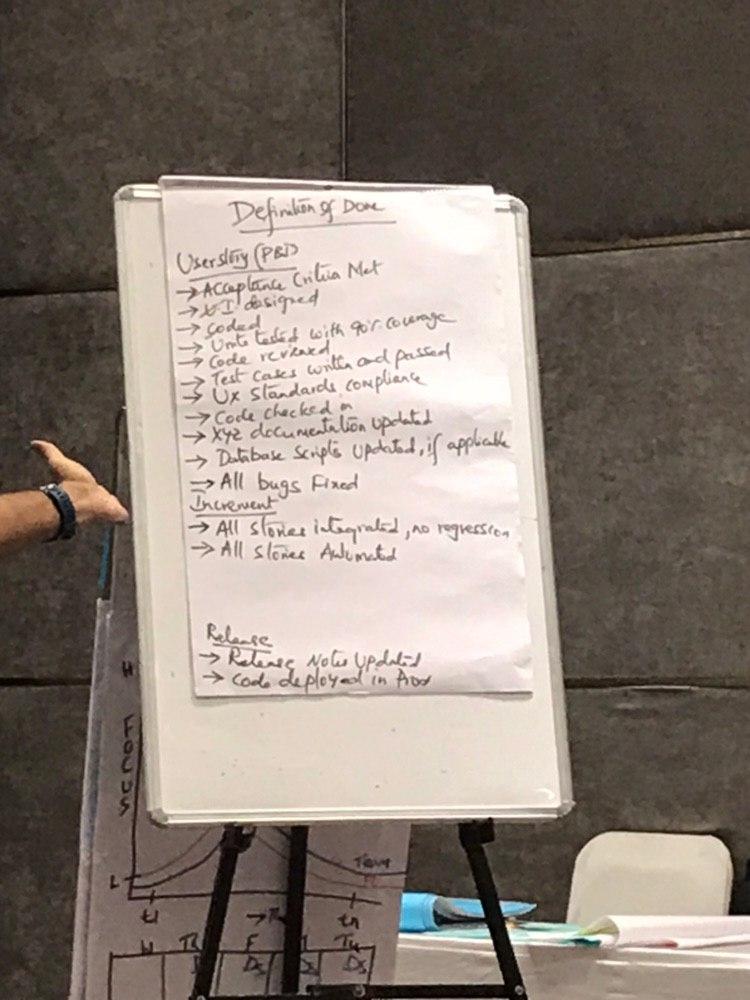 Definition of Done
Userstory (PBI)
→ Acceptance Criteria Met
→ UI designed
→ Coded
→ Unit tested with 90% coverage
→ Code reviewed
→ Test cases written and passed
→ UX Standards compliance
→ Code checked in
→ XYZ documentation updated
→ Database Scripts updated, if applicable
→ All bugs Fixed
Increment
→ All stories integrated, no regression
→ All stories Automated
Release
→ Release Notes Updated
→ Code deployed in
H
FOCUS
L
Team
t1
tn
W
F
Tu
Ds
Ds